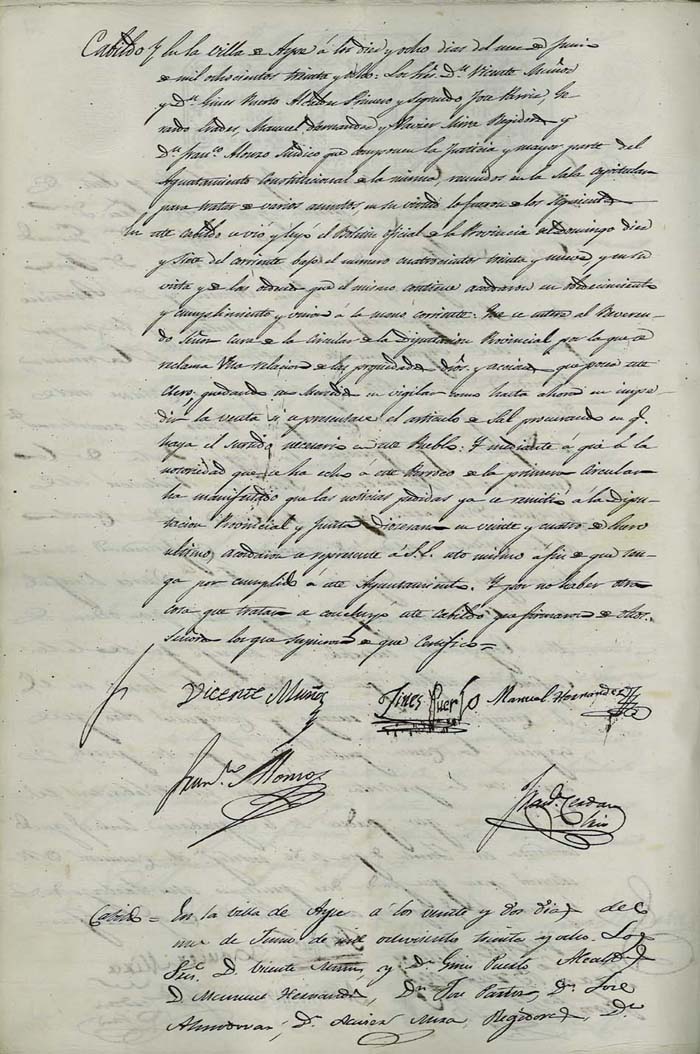 Cabildo En la villa de Aspe á los dies y ocho dias del mes de Junio
de mil ochocientos treinta y ocho: Los Sres. Dn. Vicente Muñoz
y Dn. Gines Puerto Alcaldes Primero y Segundo Jose
Manuel Hernandez y Xavier Mira Regidores y
Dn. Franco. Alonzo Sindico que componen la Justicia y mayor parte del
Ayuntamiento Constitucional de la misma, reunidos en la Sala Capitular
para tratar de varios asuntos, en su virtud lo fueron de los siguientes
En este cabildo se vió y leyó el Boletin Oficial de la Provincia del domingo dies
y siete del corriente bajo el numero cuatrocientos treinta y nueve y en su
vista y de las ordenes que el mismo contiene acordaron su obedecimiento
y cumplimiento y union á la mano corriente: Que se entere al Reveren-
do Señor Cura de la circular de la Diputacion Provincial por la que se
reclama una relacion de las propiedades y acciones que posea este
Clero, quedando sus Mercedes en vigilar como hasta ahora en impe-
dir la venta si se presentase el articulo de Sal procurando en q.
haya el surtido necesario en este Pueblo. Y mediante á que á la
notoriedad que se ha echo a este Parroco de la primera Circular
ha manifestado que las noticias pedidas ya se remitió a la Dipu-
tacion Provincial y Junta Diocesana en veinte y cuatro de Enero
ultimo, acordaron se represente á S.E. esto mismo á fin de que ten-
ga por cumplido á este Ayuntamiento. Y por no haber otra
cosa que tratar se concluyó este cabildo que firmaron de dhos.
Señores los que supieron de que Certifico =
Vicente Muñoz Gines Puerto Manuel Hernandez
Franco. Alonso
Cabildo = En la villa de Aspe a los veinte y dos dias del
mes de Junio de mil ochocientos treinta y ocho. Los
Sres. D. Vicente Muñoz y Dn. Gines Puerto Alcaldes
D. Manuel Hernandes, Dn. Jose Pastor, Dn. Jose
Almodovar, Dn. Xavier Mira, Regidores, Dn.